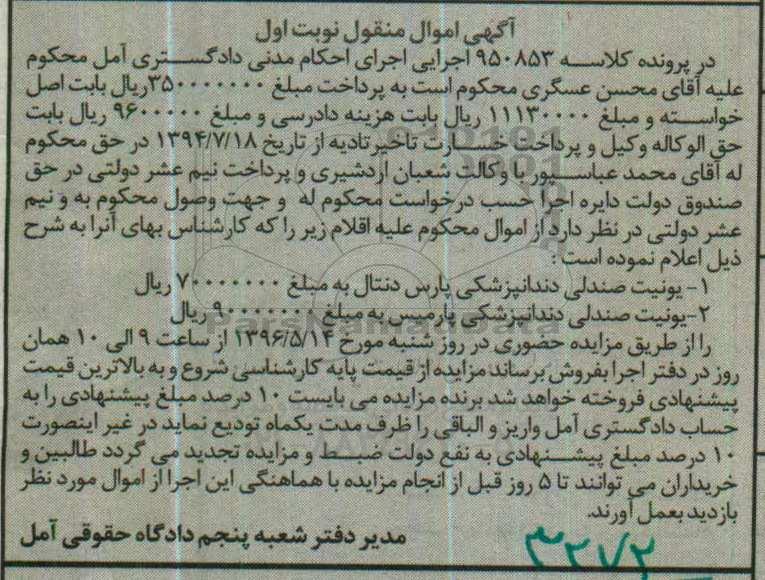 آگهی اموال منقول نوبت اول
در پرونده کلاسه ۹۵۰۸۵۳ اجرایی اجرای احکام مدنی دادگستری آمل محکوم
علیه آقای محسن عسگری محکوم است به پرداخت مبلغ ۳۵۰۰۰۰۰۰۰ ریال بابت اصل
خواسته و مبلغ ۱۱۱۳۰۰۰۰ ریال بابت هزینه دادرسی و مبلغ ۹۶۰۰۰۰۰ ریال بابت
حق الوکاله وکیل و پرداخت خسارت تاخیرتادیه از تاریخ ۱۳۹۴/۷/۱۸ در حق محکوم
له آقای محمد عباسپور با وکالت شعبان اردشیری و پرداخت نیم عشر دولتی در حق
صندوق دولت دایره اجرا حسب درخواست محکوم له و جهت وصول محکوم به و نیم
عشر دولتی در نظر دارد از اموال محکوم علیه اقلام زیر را که کارشناس بهای آنرا به شرح
ذیل اعلام نموده است :
۱- یونیت صندلی دندانپزشکی پارس دنتال به مبلغ ۷۰۰۰۰۰۰۰ ریال
۲-یونیت صندلی دندانپزشکی پارمیس به مبلغ ۹۰۰۰۰۰۰۰ ریال
را از طریق مزایده حضوری در روز شنبه مورخ ۱۳۹۶/۵/۱۴ از ساعت ۹ الی ۱۰ همان
روز در دفتر اجرا بفروش برساند مزایده از قیمت پایه کارشناسی شروع و به بالاترین قیمت
پیشنهادی فروخته خواهد شد برنده مزایده می بایست ۱۰ درصد مبلغ پیشنهادی را به
حساب دادگستری آمل واریز و الباقی را ظرف مدت یکماه تودیع نماید در غیر اینصورت
۱۰ درصد مبلغ پیشنهادی به نفع دولت ضبط و مزایده تجدید می گردد طالبین و
خریداران می توانند تا ۵ روز قبل از انجام مزایده با هماهنگی این اجرا از اموال مورد نظر
بازدید بعمل آورند.
مدیر دفتر شعبه پنجم دادگاه حقوقی آمل
۳۲۷۲
ParsNamadData